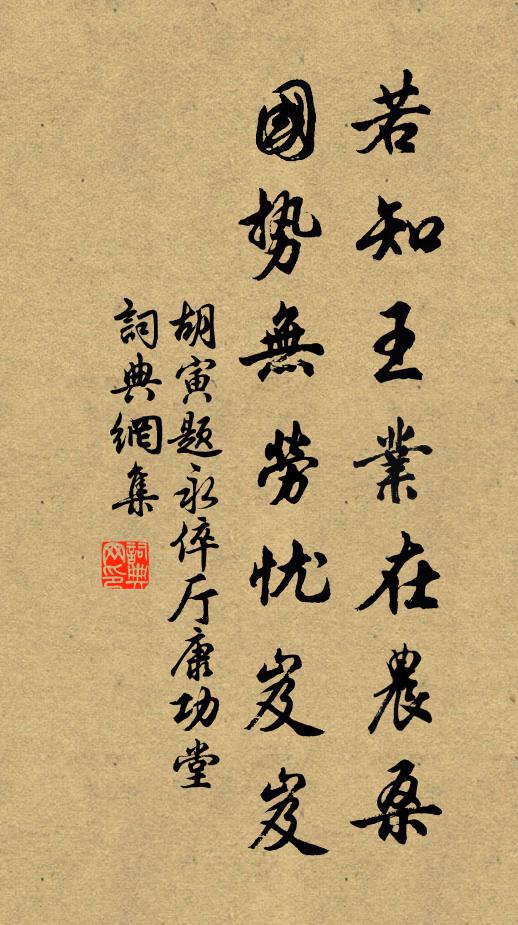 若知王業在農桑
國势無勞忧岌岌
胡寅题永倅厅康功堂
詞典網集
詞典网印